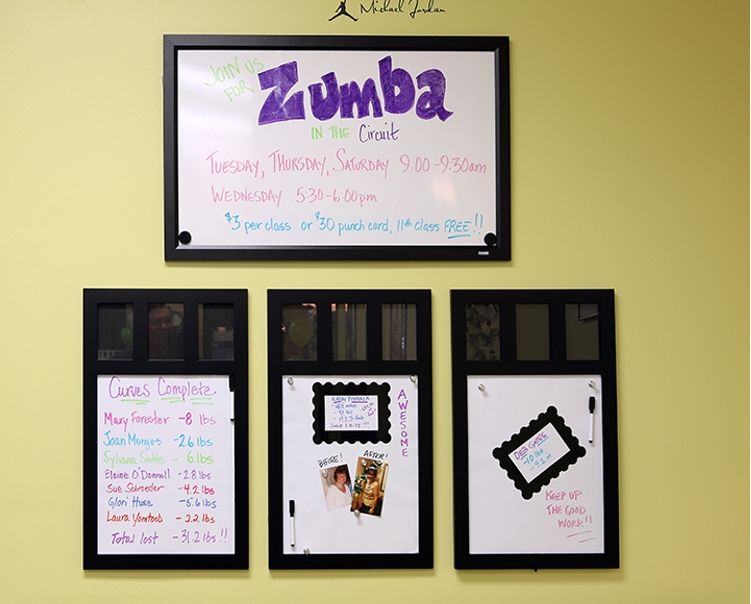 Michael Jordan
JOIN US
FOR
Zumba
IN THE Circuit
TUESDAY, THURSDAY, SATURDAY 9:00-9:30am
WEDNESDAY 5:30-6:00pm
$3 per class or $30 punch card, 11th class FREE!!
Curves Complete
Mary Forester -8 lbs
Joan Menges -2.6 lbs
Sylvana - 6 lbs
Elaine O'Donnall -2.8 lbs
Sue Schroeder -4.2 lbs
Glori Huse -5.6 lbs
Laura -2.2 lbs
Total lost -31.2 lbs!!
AWESOME
BEFORE!
AFTER!
DEB
-10 lbs
-9.2 in
KEEP UP
THE GOOD
WORK!!